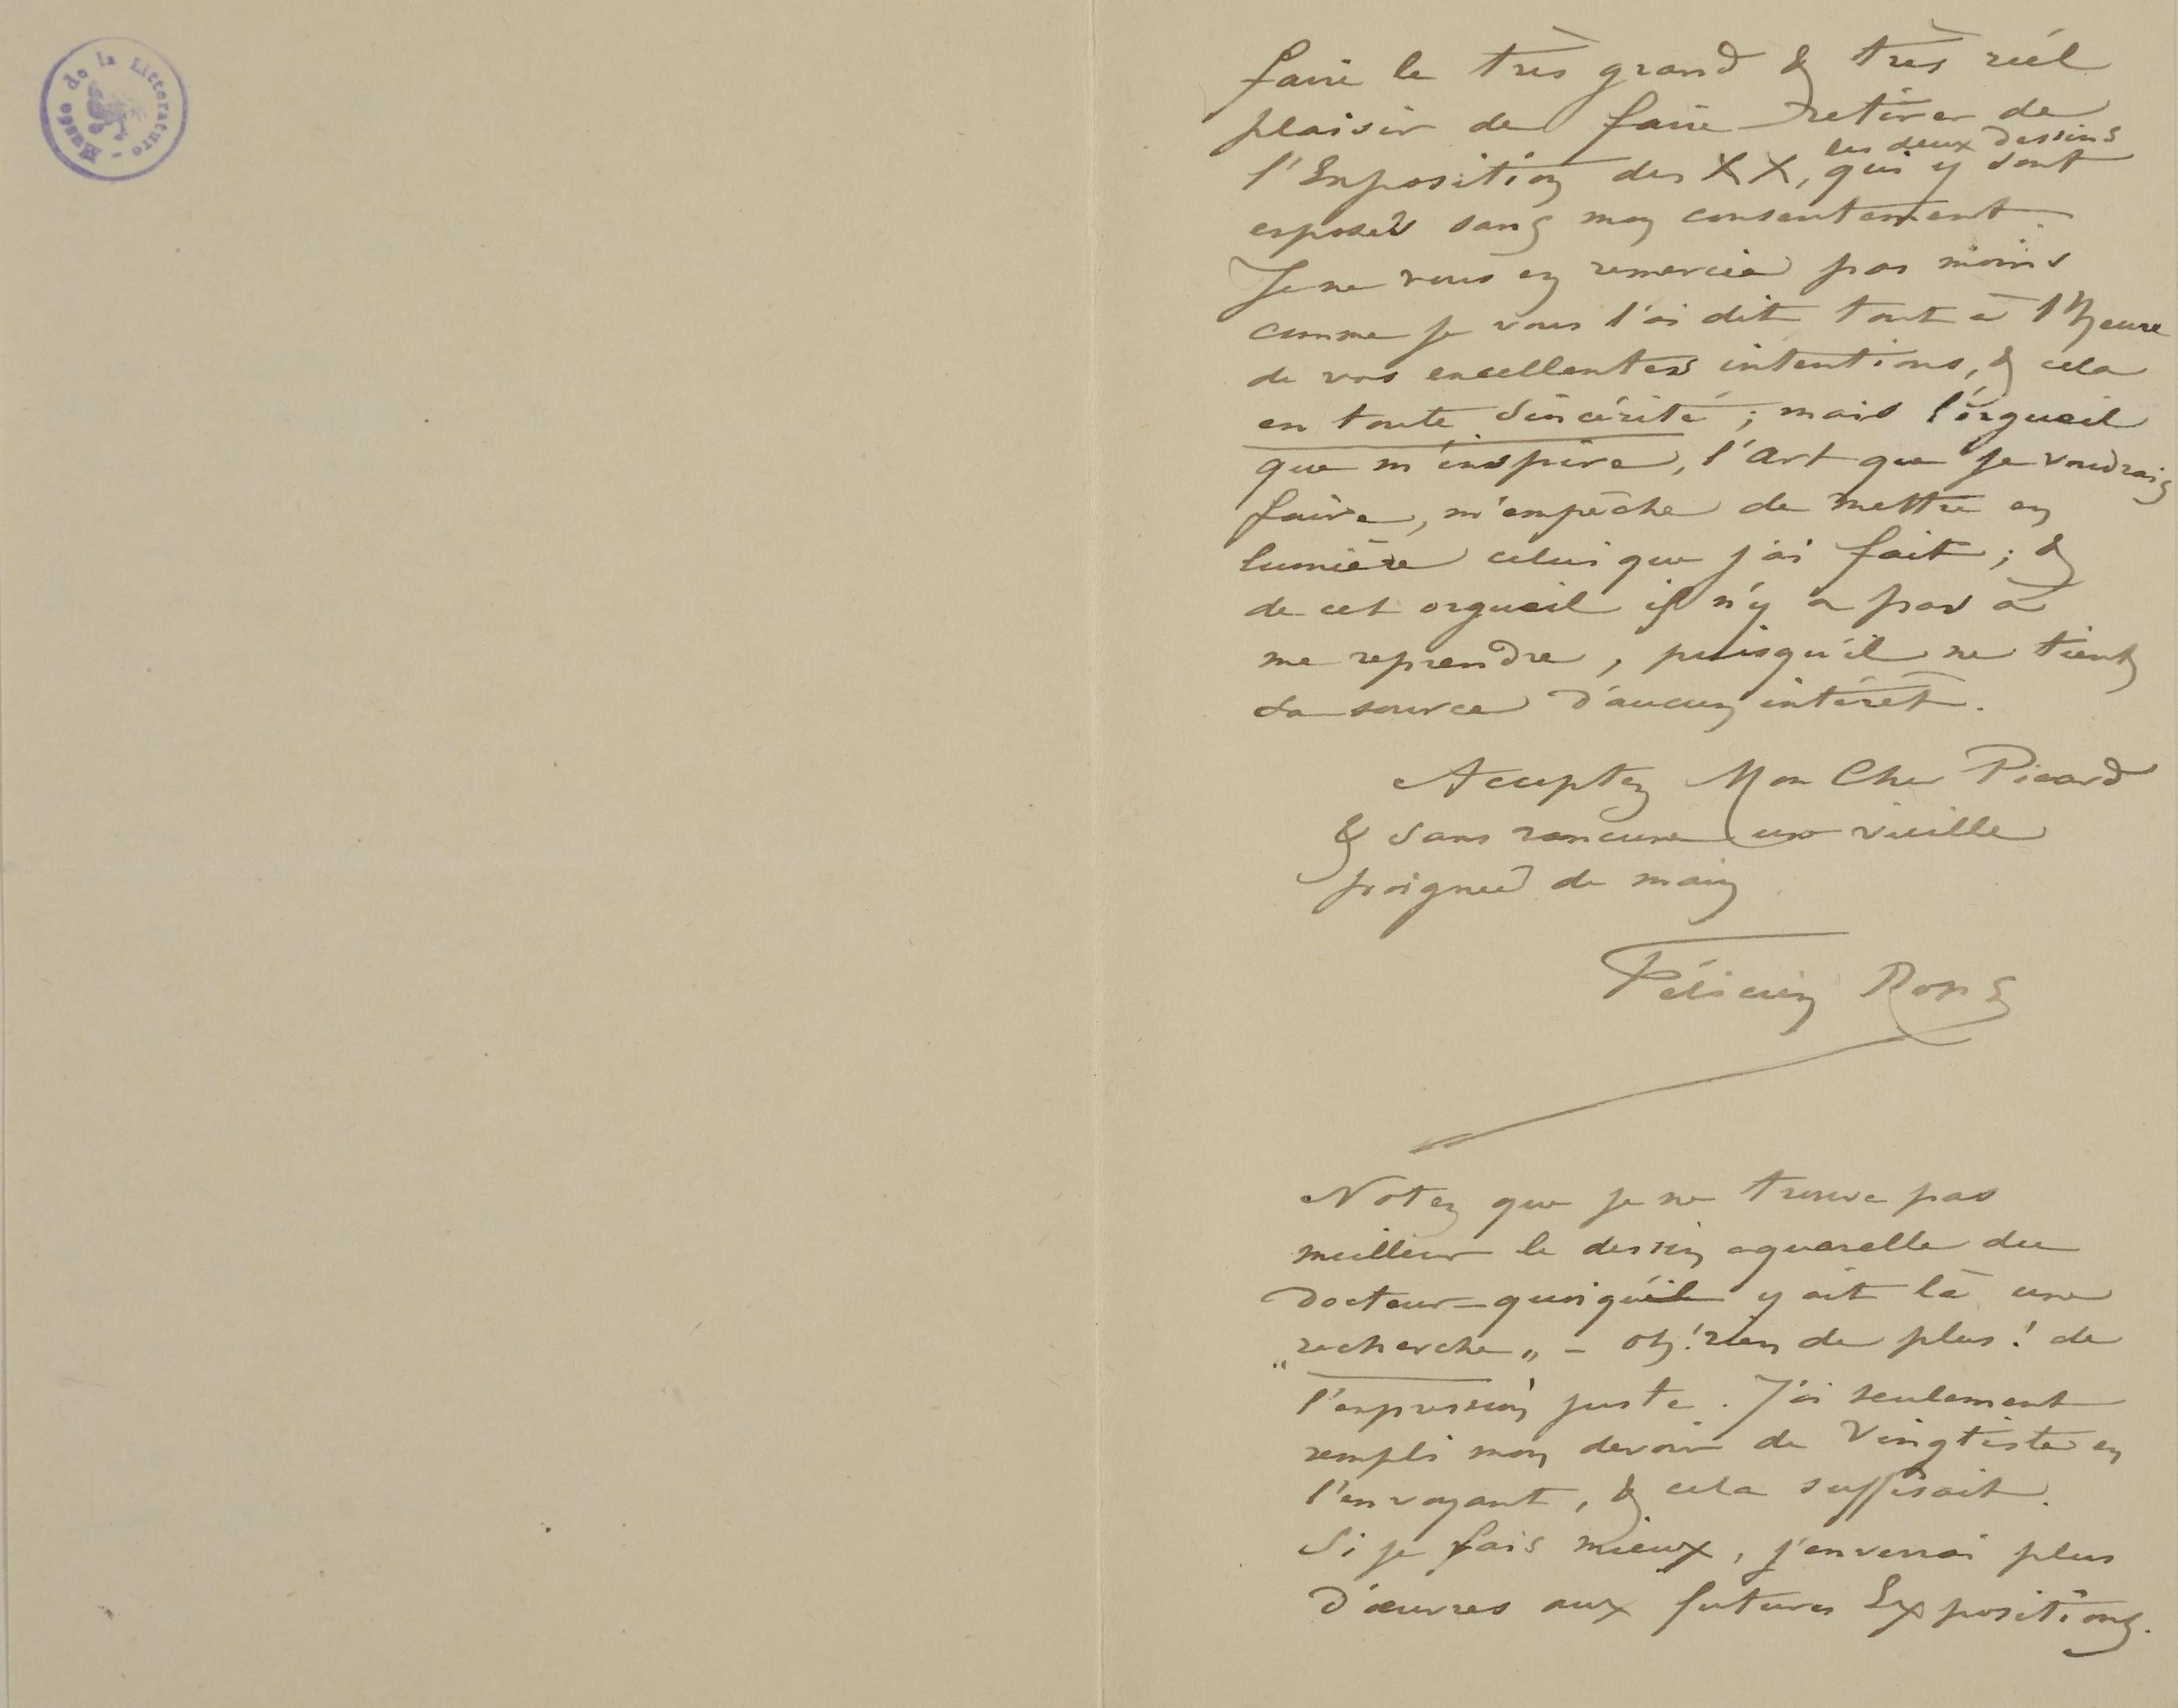 Musée de la Litterature -
faire le très grand & très réel
plaisir de faire retirer de
les deux dessins
l'Exposition des XX, qui y sont
exposés sans mon consentement.
Je ne vous en remercie pas moins
comme je vous l'ai dit tout à l'heure
de vos excellentes intentions, & cela
en toute sincérité ; mais l'orgueil
que m'inspire, l'art que je voudrais
faire, m'empêche de mettre en
lumière celui que j'ai fait ; &
de cet orgueil il n'y a pas à
me reprendre, puisqu'il ne tient
sa source d'aucun intérêt.
Acceptez Mon Cher Picard
& sans rancune une vieille
poignée de main
Félicien Rops
Notez que je ne trouve pas
meilleur le dessin aquarelle du
Docteur quoiqu'il y ait là une
„recherche„ – oh! rien de plus! de
l'expression juste. J'ai seulement
rempli mon devoir de Vingtiste en
l'envoyant, & cela suffisait.
Si je fais mieux, j'enverrai plus
d'œuvres aux futures Expositions.